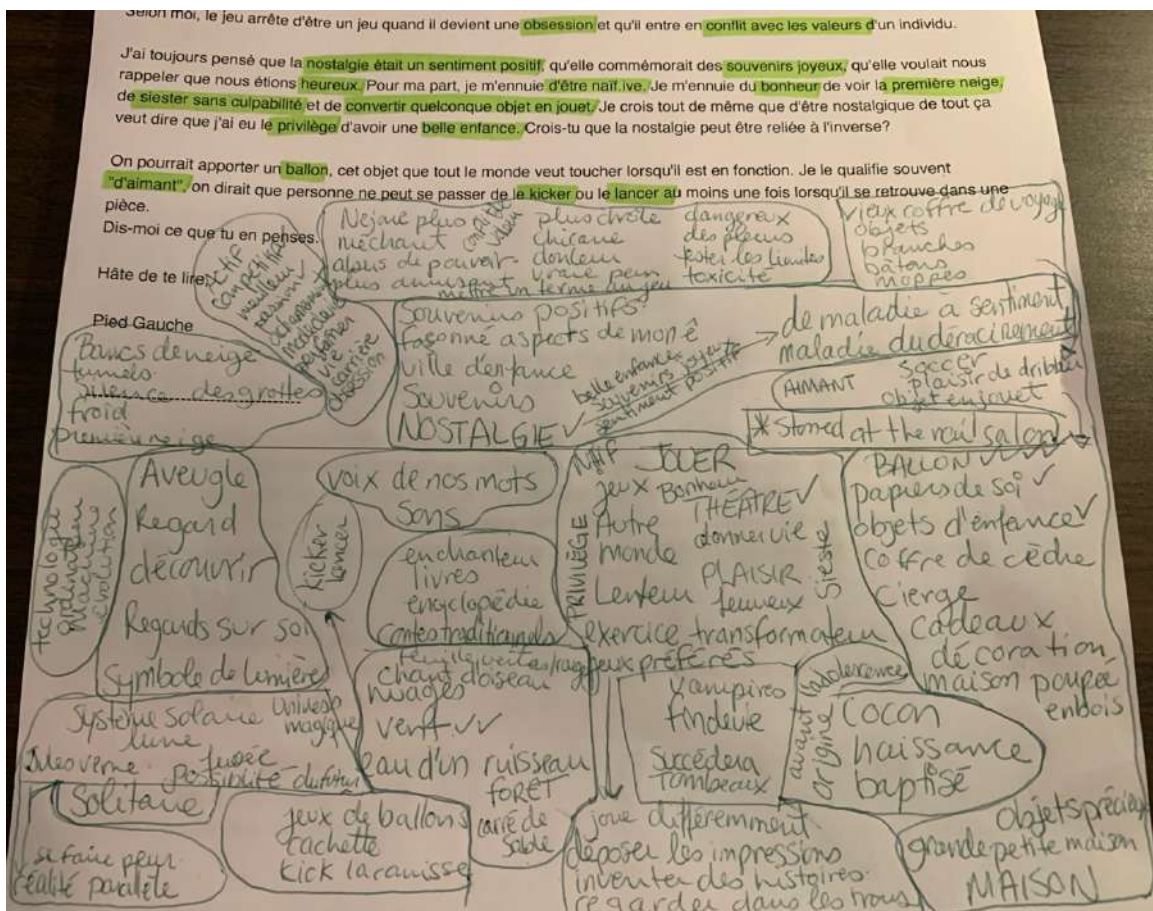 Selon moi, le jeu arrête d'être un jeu quand il devient une obsession et qu'il entre en conflit avec les valeurs d'un individu.
J'ai toujours pensé que la nostalgie était un sentiment positif, qu'elle commémorait des souvenirs joyeux, qu'elle voulait nous
rappeler que nous étions heureux. Pour ma part, je m'ennuie d'être naïf.ive. Je m'ennuie du bonheur de voir la première neige,
de siester sans culpabilité et de convertir quelconque objet en jouet. Je crois tout de même que d'être nostalgique de tout ça
veut dire que j'ai eu le privilège d'avoir une belle enfance. Crois-tu que la nostalgie peut être reliée à l'inverse?
On pourrait apporter un ballon, cet objet que tout le monde veut toucher lorsqu'il est en fonction. Je le qualifie souvent
"d'aimant", on dirait que personne ne peut se passer de le kicker ou le lancer au moins une fois lorsqu'il se retrouve dans une
pièce.
Dis-moi ce que tu en penses.
Hâte de te lire,
Pied Gauche
Ne joue plus
méchant
abus de pouvoir
plus amusant
plus drôle
chicane
douleur
vraie peur
mettre un terme un jeu
dangereux
des pleurs
tester les limites
toxicité
vieux coffre de voyage
objets
branches
bâtons
moppes
compétitif
meilleur
passion
vie
carrière
obsession
Bancs de neige
tunnels
silence des grottes
froid
première neige
souvenirs positifs
façonné aspects de mon ê
ville d'enfance
Souvenirs
NOSTALGIE ✓
belle enfance
souvenirs joyeux
sentiment positif
de maladie à sentiment
maladie du déracinement
AIMANT
soccer
plaisir de dribbler
objet en jouet
* Stoned at the nail salon
technologie
ordinateur
machine
évolution
Aveugle
Regard
découvrir
Regards sur soi
symbole de lumière
voix de nos mots
sons
kicker
lancer
enchanteur
livres
encyclopédie
contes traditionnels
NAÏF
JOUER
jeux
Bonheur
THÉÂTRE ✓
Autre
monde
donner vie
PRIVILÈGE
Lenteur
PLAISIR
Sieste
exercice transformateur
jeux préférés
BALLON ✓✓✓✓
papiers de soi ✓
objets d'enfance ✓
coffre de cèdre
cierge
cadeaux
décoration
maison poupée
en bois
chant d'oiseau
nuages
vent ✓✓
eau d'un ruisseau
FORÊT
carré de
sable
système solaire
lune
Univers
magique
Jules Verne
fusée
possibilité du futur
Solitaire
se faire peur
réalité parallèle
jeux de ballons
cachette
kick la canisse
vampires
fin de vie
succédera
Tombeaux
avant
l'adolescence
origine
COCON
naissance
baptisé
joue différemment
déposer les impressions
inventer des histoires
regarder dans les trous
objets précieux
grande petite maison
MAISON